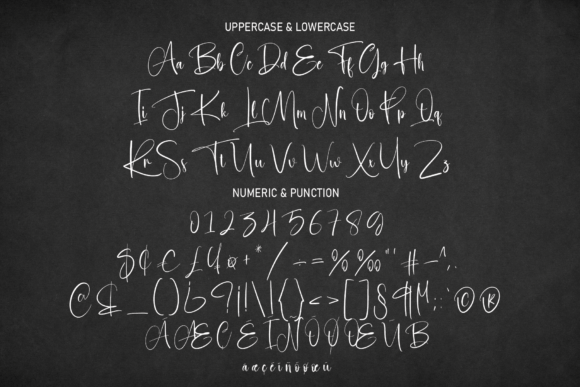 UPPERCASE & LOWERCASE
Aa Bb Cc Dd Ee Ff Gg Hh
Ii Jj Kk Ll Mm Nn Oo Pp Qq
Rr Ss Tt Uu Vv Ww Xx Yy Zz
NUMERIC & PUNCTION
0 1 2 3 4 5 6 7 8 9
$ ¢ € £ ¥ ¤ + * / ÷ = % ‰ " ' # - ^ , .
@ & _ ( ) ¡ ! \ | { } < > [ ] § ¶ , : © ®